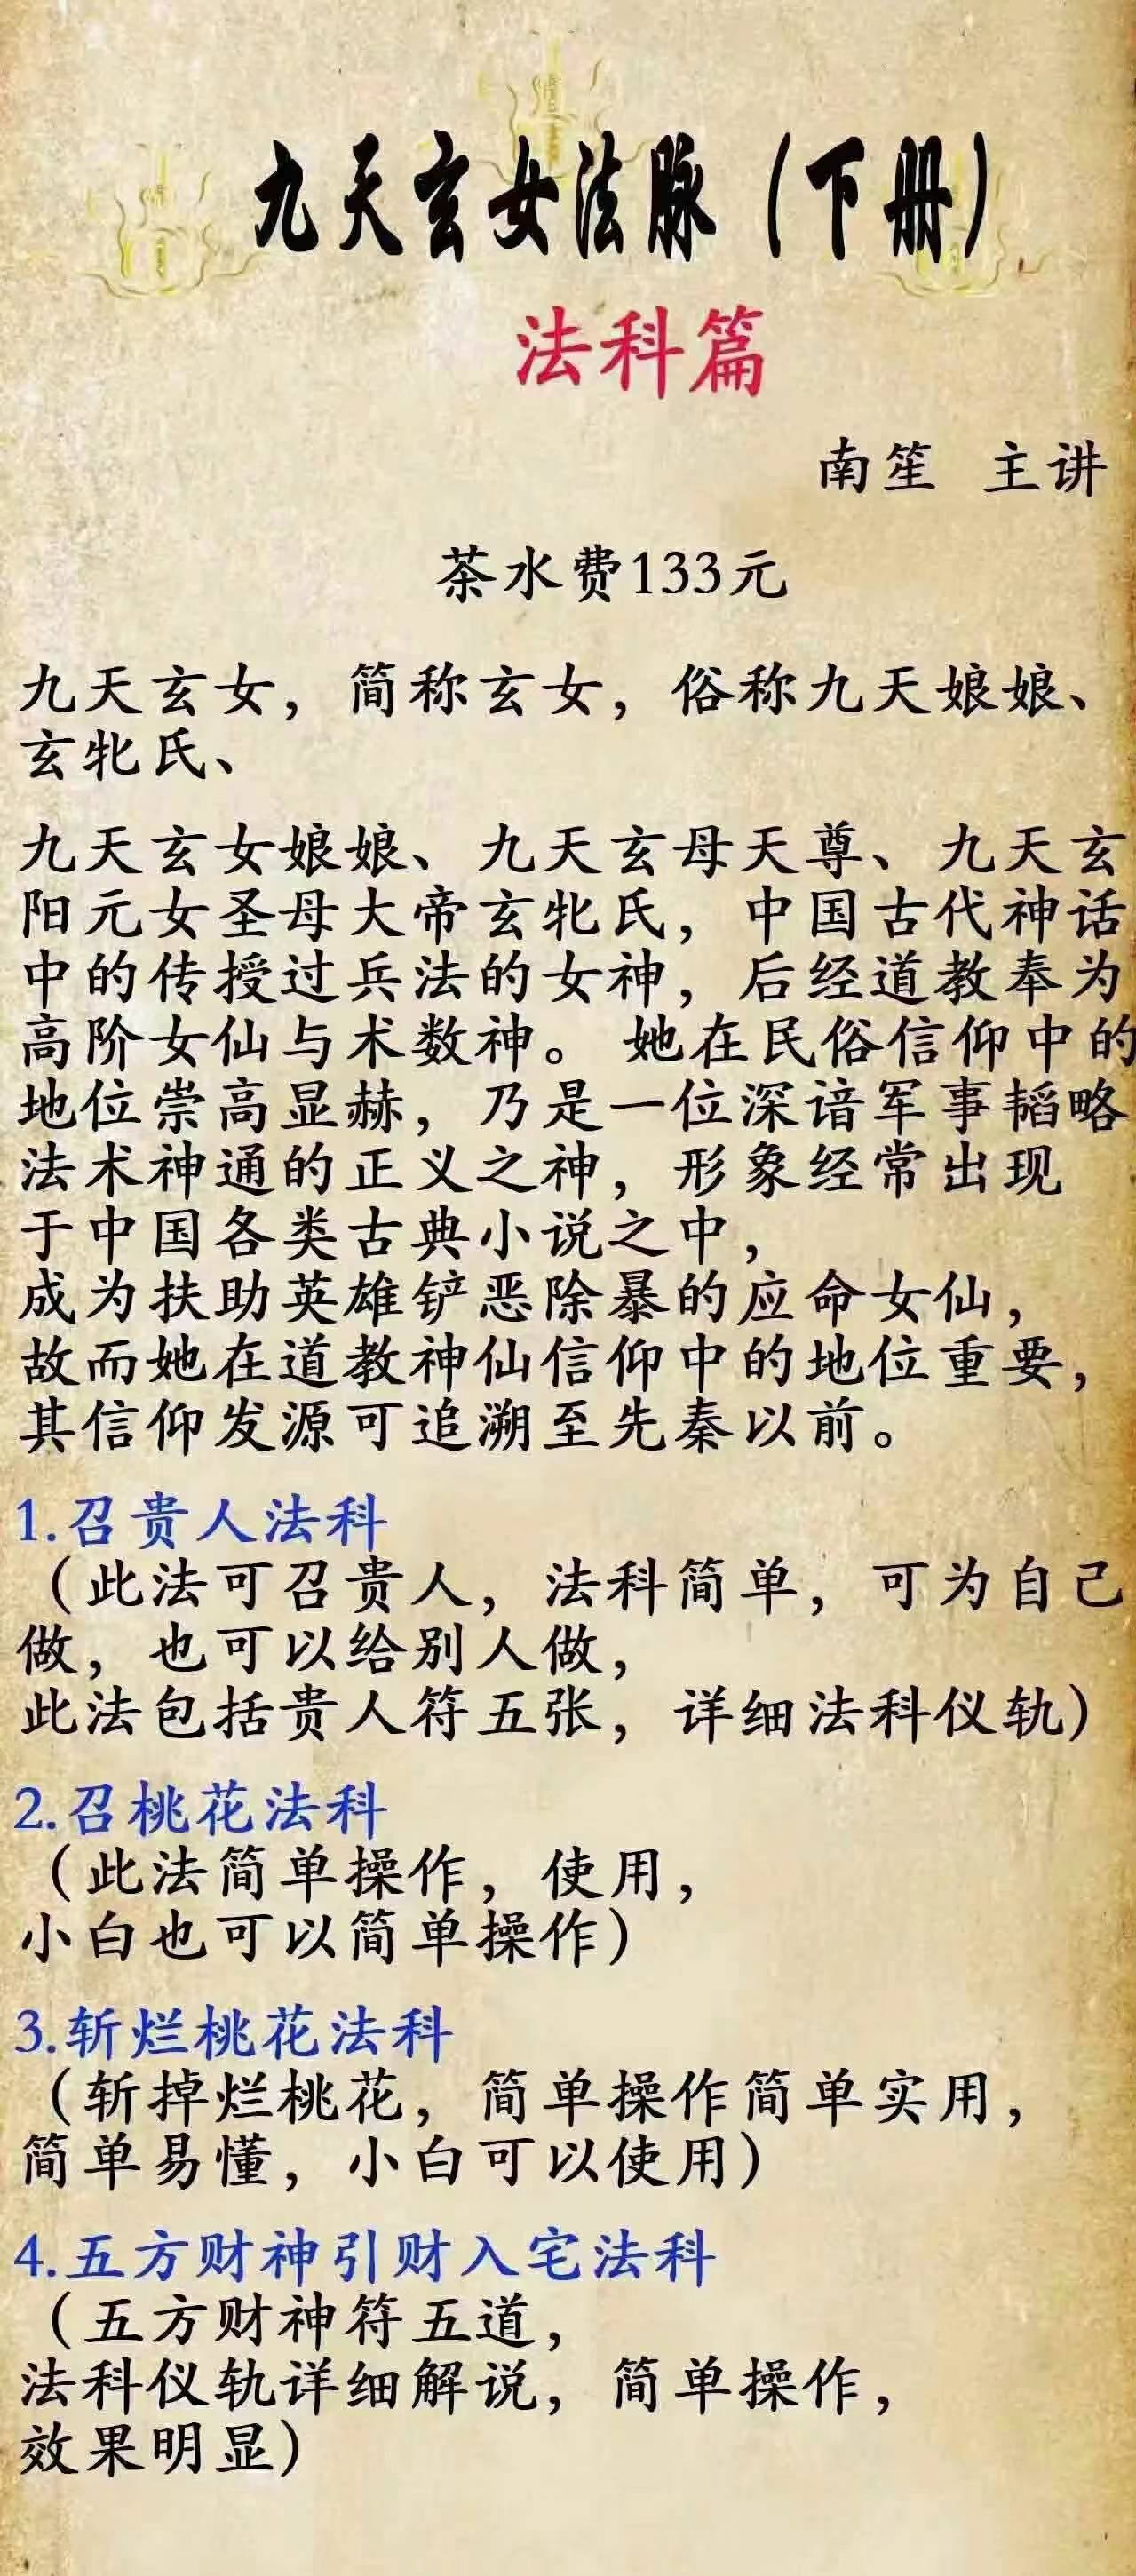 九天玄女法脉（下册）
法科篇
南笙 主讲
茶水费133元
九天玄女，简称玄女，俗称九天娘娘、
玄牝氏、
九天玄女娘娘、九天玄母天尊、九天玄
阳元女圣母大帝玄牝氏，中国古代神话
中的传授过兵法的女神，后经道教奉为
高阶女仙与术数神。她在民俗信仰中的
地位崇高显赫，乃是一位深谙军事韬略
法术神通的正义之神，形象经常出现
于中国各类古典小说之中，
成为扶助英雄铲恶除暴的应命女仙，
故而她在道教神仙信仰中的地位重要，
其信仰发源可追溯至先秦以前。
1.召贵人法科
（此法可召贵人，法科简单，可为自己
做，也可以给别人做，
此法包括贵人符五张，详细法科仪轨）
2.召桃花法科
（此法简单操作，使用，
小白也可以简单操作）
3.斩烂桃花法科
（斩掉烂桃花，简单操作简单实用，
简单易懂，小白可以使用）
4.五方财神引财入宅法科
（五方财神符五道，
法科仪轨详细解说，简单操作，
效果明显）